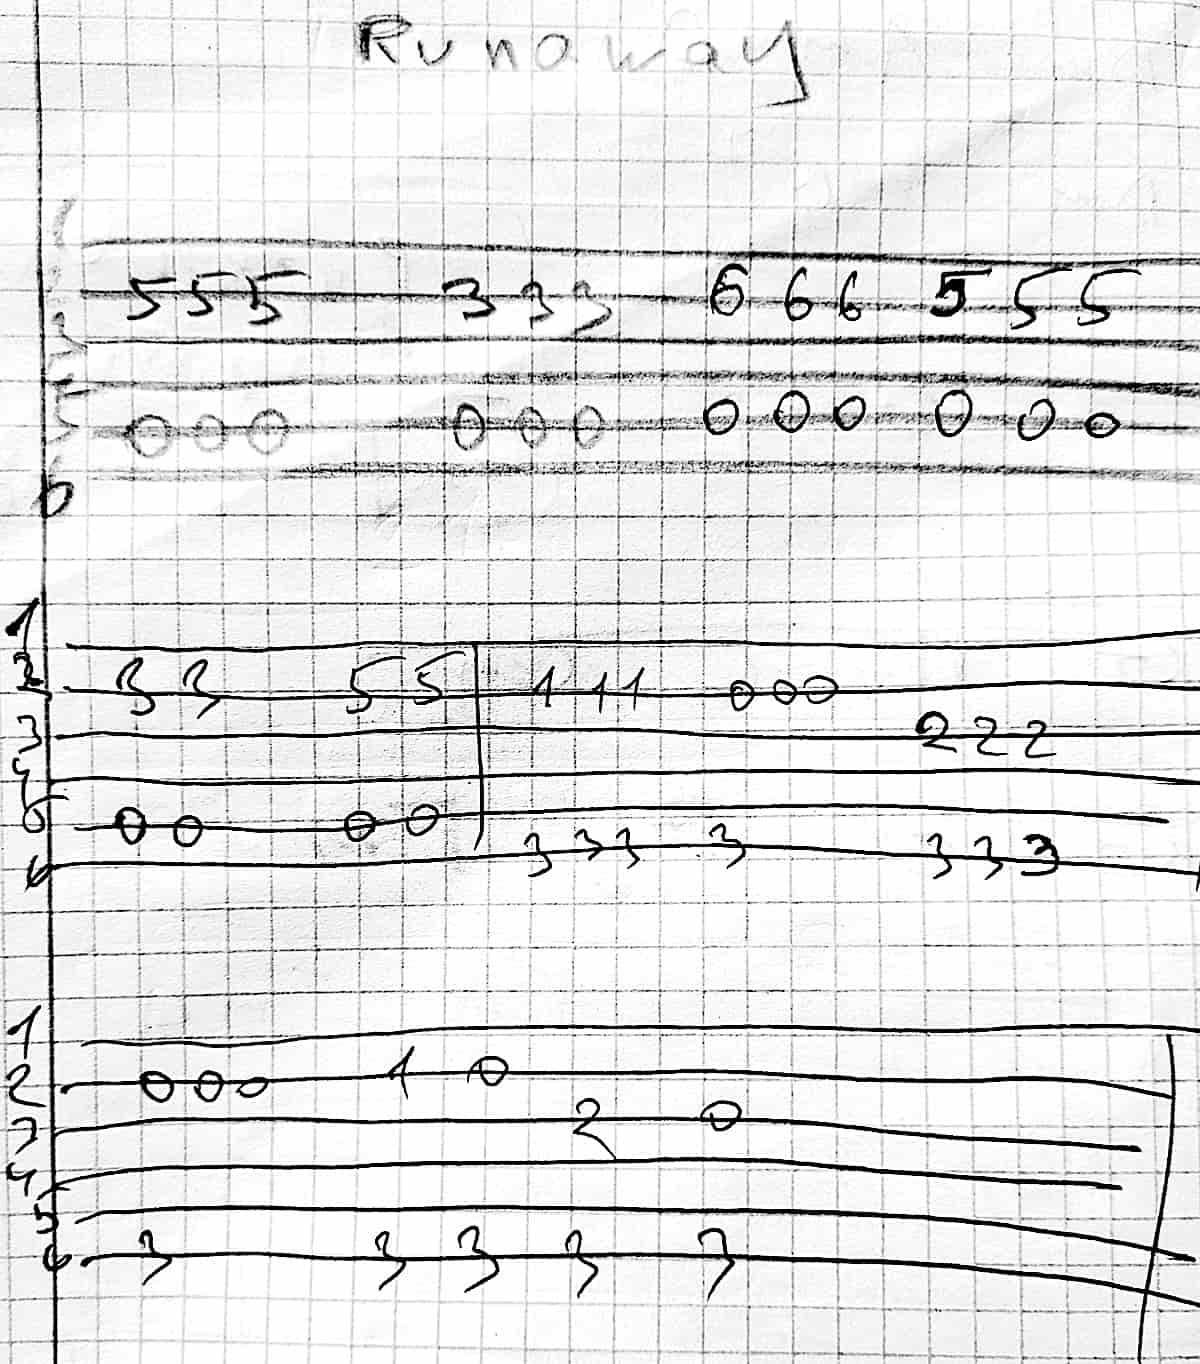 Runaway
5 5 5 3 3 3 6 6 6 5 5 5
0 0 0 0 0 0 0 0 0 0 0 0
6
1
2 3 3 5 5 1 1 1 0 0 0
3 2 2 2
4
5 0 0 0 0
6 3 3 3 3 3 3 3
1
2 0 0 0 1 0
3 2 0
4
5
6 3 3 3 3 3